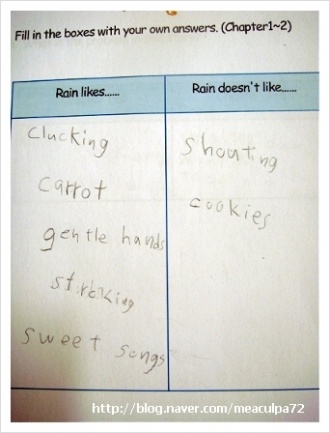 Fill in the boxes with your own answers. (Chapter1~2)
Rain likes......
Rain doesn't like......
clucking
carrot
gentle hands
stroking
sweet songs
shouting
cookies
http://blog.naver.com/meaculpa72